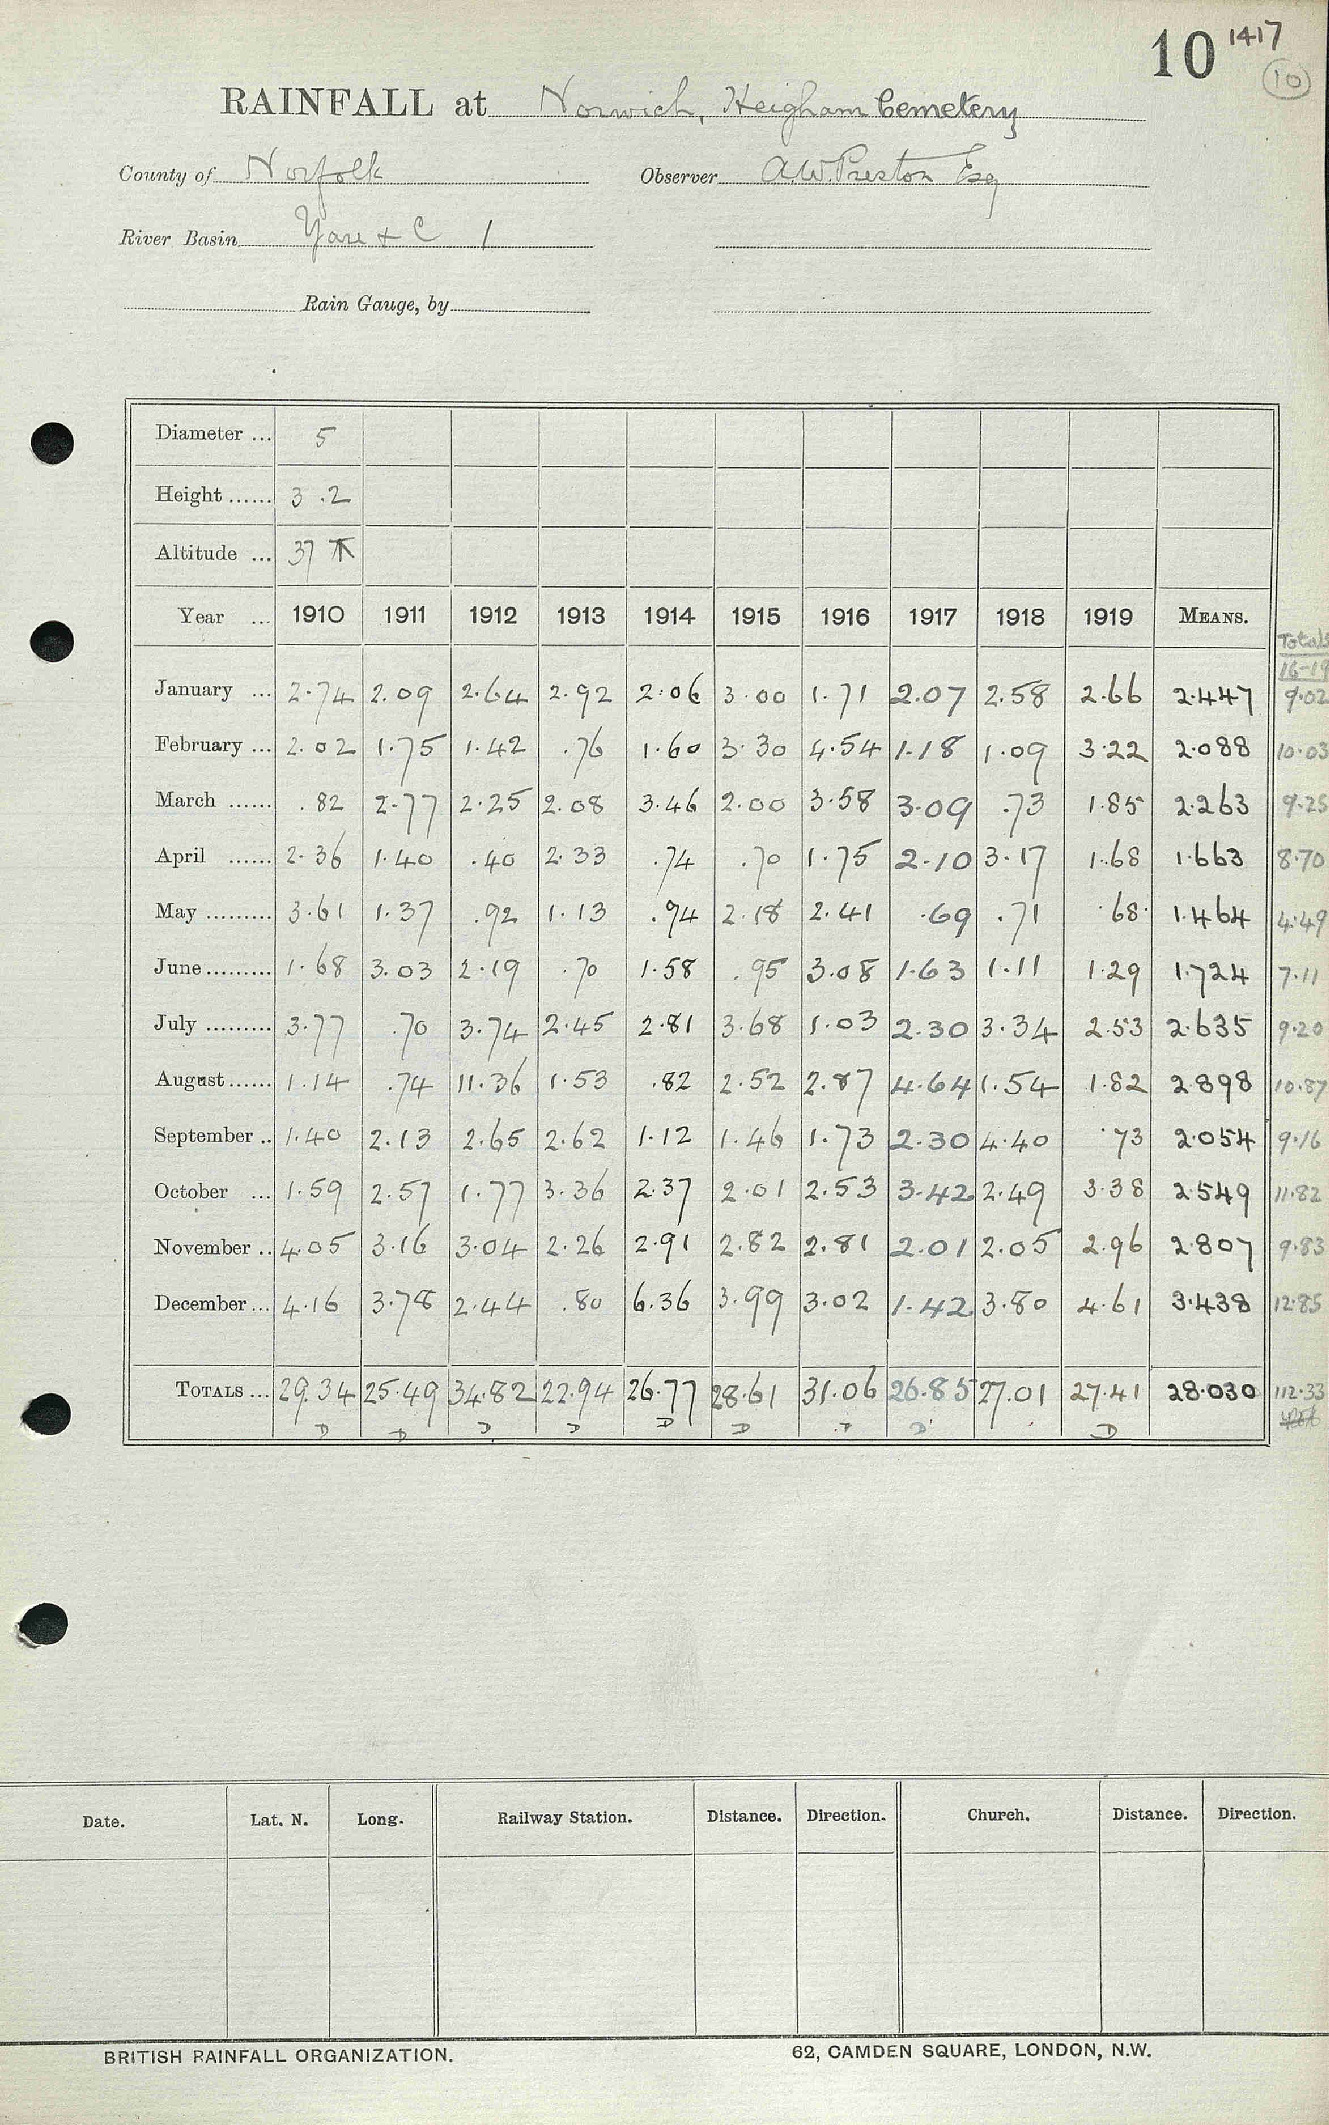 10 1417
10
RAINFALL at Norwich, Heigham Cemetery
County of Norfolk Observer A.W. Preston Esq
River Basin Yare & C 1
Rain Gauge, by
Diameter ... 5
Height ...... 3 .2
Altitude ... 37
Year ... 1910 1911 1912 1913 1914 1915 1916 1917 1918 1919 MEANS. Totals
16-19
January ... 2.74 2.09 2.64 2.92 2.06 3.00 1.71 2.07 2.58 2.66 2.447 9.02
February ... 2.02 1.75 1.42 .76 1.60 3.30 4.54 1.18 1.09 3.22 2.088 10.03
March ...... .82 2.77 2.25 2.08 3.46 2.00 3.58 3.09 .73 1.85 2.263 9.25
April ...... 2.36 1.40 .40 2.33 .74 .70 1.75 2.10 3.17 1.68 1.663 8.70
May ......... 3.61 1.37 .92 1.13 .94 2.18 2.41 .69 .71 .68 1.464 4.49
June ......... 1.68 3.03 2.19 .70 1.58 .95 3.08 1.63 1.11 1.29 1.724 7.11
July ......... 3.77 .70 3.74 2.45 2.81 3.68 1.03 2.30 3.34 2.53 2.635 9.20
August ...... 1.14 .74 11.36 1.53 .82 2.52 2.87 4.64 1.54 1.82 2.898 10.87
September .. 1.40 2.13 2.65 2.62 1.12 1.46 1.73 2.30 4.40 .73 2.054 9.16
October ... 1.59 2.57 1.77 3.36 2.37 2.01 2.53 3.42 2.49 3.38 2.549 11.82
November .. 4.05 3.16 3.04 2.26 2.91 2.82 2.81 2.01 2.05 2.96 2.807 9.83
December ... 4.16 3.78 2.44 .80 6.36 3.99 3.02 1.42 3.80 4.61 3.438 12.85
TOTALS ... 29.34 25.49 34.82 22.94 26.77 28.61 31.06 26.85 27.01 27.41 28.030 112.33
D D D D D D D D D
Date. Lat. N. Long. Railway Station. Distance. Direction. Church. Distance. Direction.
BRITISH RAINFALL ORGANIZATION. 62, CAMDEN SQUARE, LONDON, N.W.